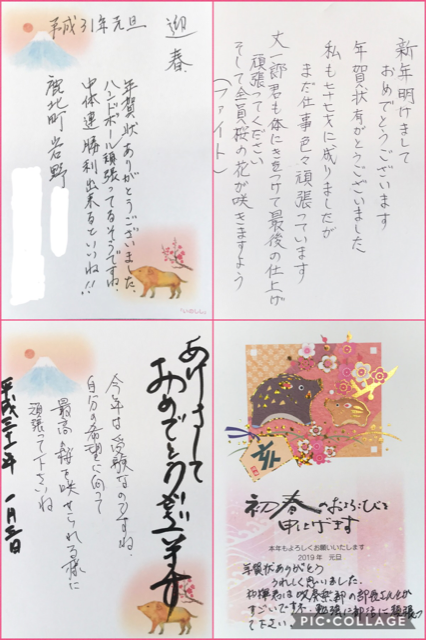 迎春
平成31年元旦
年賀状ありがとうございました。
ハンドボール頑張ってるそうですね
中体連勝利出来るといいね!!
鹿北町岩野
新年明けまして
おめでとうございます
年賀状有がとうございました
私も七十七才に成りましたが
まだ仕事色々頑張っています
丈一郎君も体にきをつけて最後の仕上げ
頑張ってください
そして全員桜の花が咲きますよう
(ファイト)
あけまして
おめでとうございます
今年は受験なのですね、
自分の希望に向って
最高の桜を咲させられる様に
頑張って下さいね
平成三十一年 一月三日
亥
初春のおよろこびを
申し上げます
本年もよろしくお願いいたします
2019年 元旦
年賀状ありがとう
うれしく思いました.
吹奏楽部の部長さんとか
すごいですネ. 勉強に部活に頑張っ
て下さい
PIC•COLLAGE